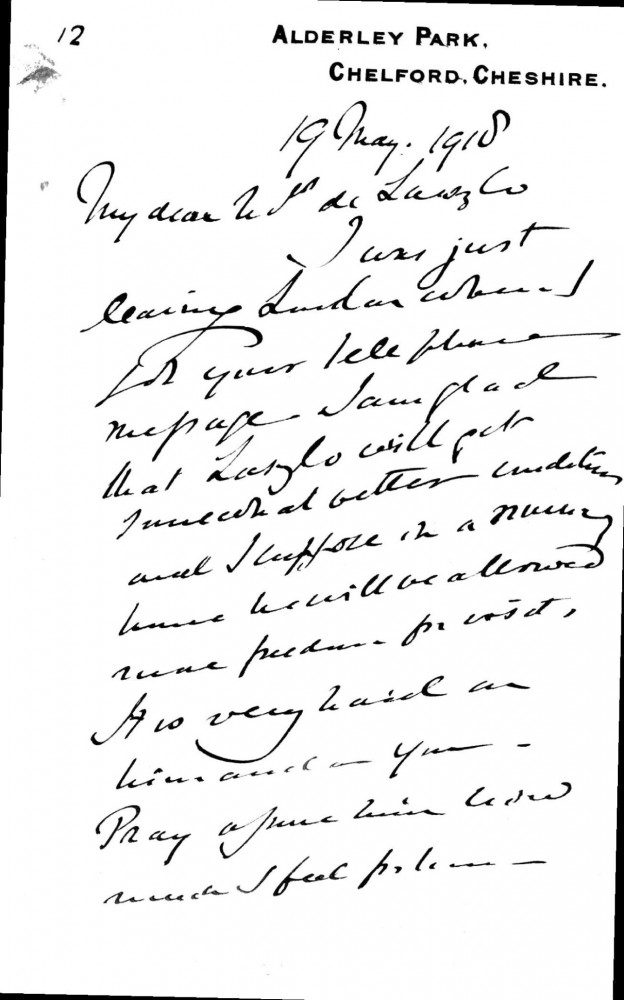 12
ALDERLEY PARK,
CHELFORD, CHESHIRE.
19 May. 1918
My dear Mrs de Laszlo
I was just
leaving London when I
got your telephone
message. I am glad
that Laszlo will get
somewhat better conditions
and I suppose in a nursing
home he will be allowed
more freedom for visits,
It is very hard on
him and on you -
Pray assure him how
much I feel for him -